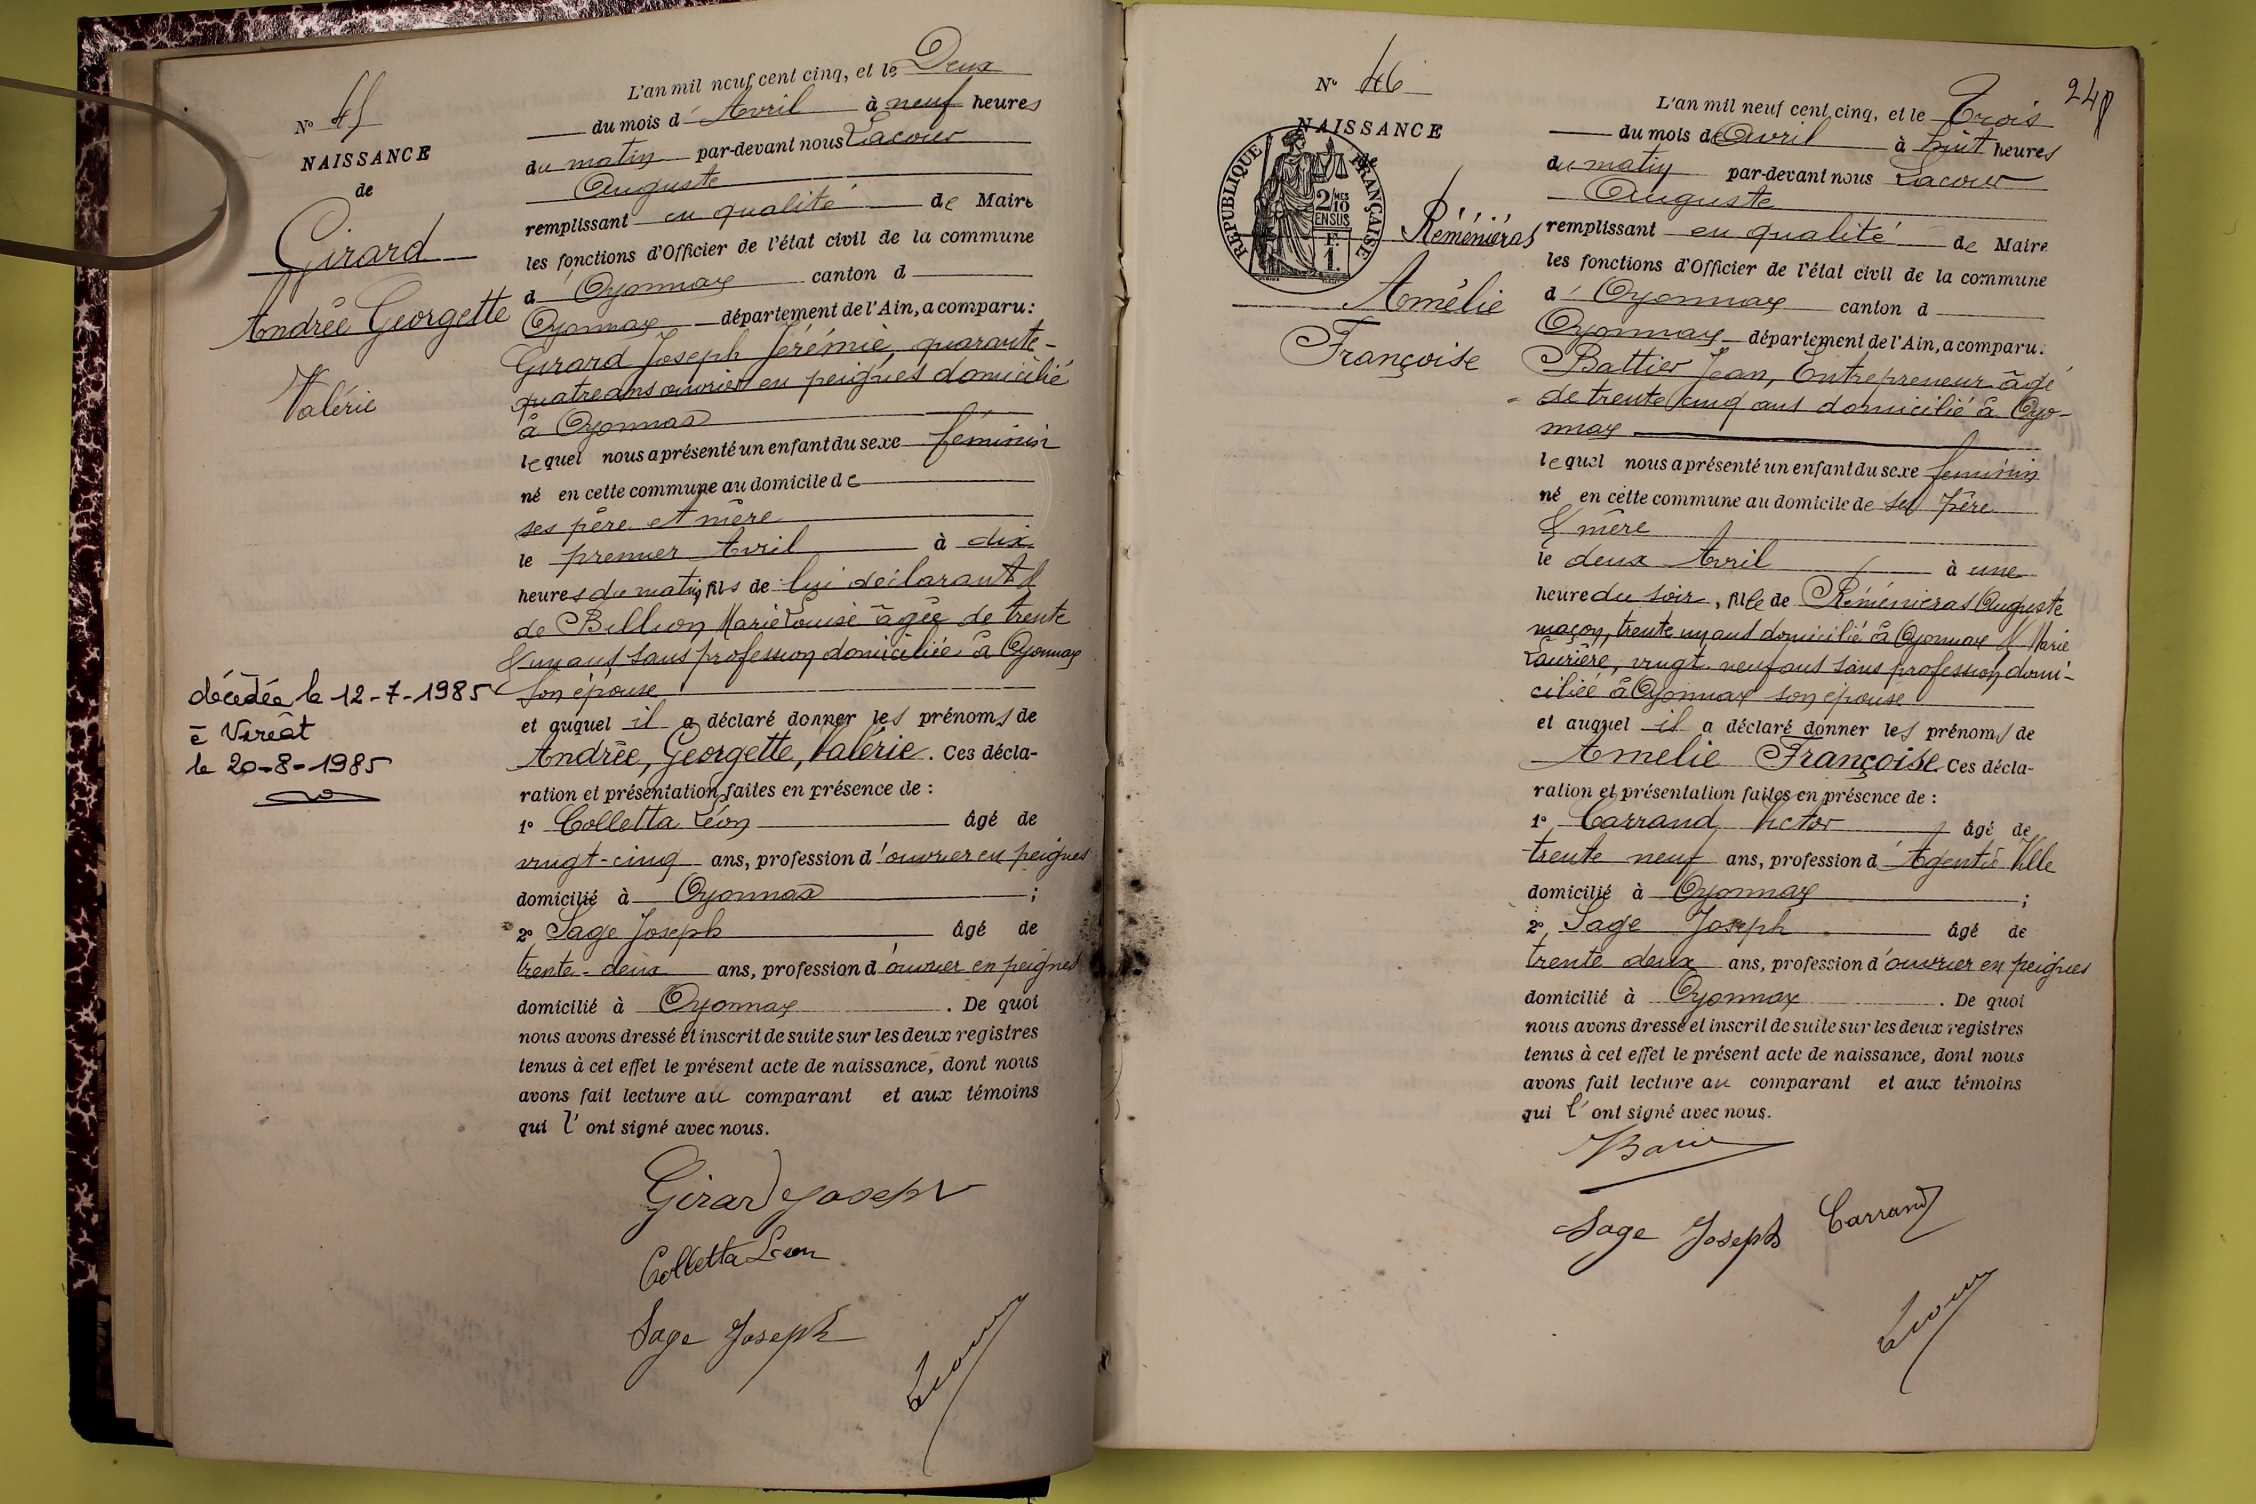 N° 45
NAISSANCE
de
Girard
Andrée Georgette
Valérie
décédée le 12-7-1985
à Viriat
le 20-8-1985
L'an mil neuf cent cinq, et le Deux
du mois d' Avril à neuf heures
du matin par-devant nous Lacour
Auguste
remplissant en qualité de Maire
les fonctions d'Officier de l'état civil de la commune
d' Oyonnax canton d
Oyonnax département de l'Ain, a comparu:
Girard Joseph Jérémie, quarante-
quatre ans ouvrier en peignes domicilié
à Oyonnax
lequel nous a présenté un enfant du sexe féminin
né en cette commune au domicile de
ses père et mère
le premier Avril à dix
heures du matin, fils de lui déclarant &
de Billion Marie Louise âgée de trente
& un ans sans profession domiciliée à Oyonnax
son épouse
et auquel il a déclaré donner les prénoms de
Andrée, Georgette, Valérie. Ces décla-
ration et présentation faites en présence de :
1° Colletta Léon âgé de
vingt-cinq ans, profession d'ouvrier en peignes
domicilié à Oyonnax ;
2° Sage Joseph âgé de
trente-deux ans, profession d'ouvrier en peignes
domicilié à Oyonnax . De quoi
nous avons dressé et inscrit de suite sur les deux registres
tenus à cet effet le présent acte de naissance, dont nous
avons fait lecture au comparant et aux témoins
qui l' ont signé avec nous.
Girard Joseph
Colletta Léon
Sage Joseph
Lacour
248
N° 46
NAISSANCE
de
RÉPUBLIQUE FRANÇAISE
2/10 MES
EN SUS
F.
1.
Réméniéras
Amélie
Françoise
L'an mil neuf cent cinq, et le Trois
du mois d'Avril à huit heures
du matin par-devant nous Lacour
Auguste
remplissant en qualité de Maire
les fonctions d'Officier de l'état civil de la commune
d' Oyonnax canton d
Oyonnax département de l'Ain, a comparu:
Battier Jean, Entrepreneur âgé
de trente cinq ans domicilié à Oyo-
nnax
lequel nous a présenté un enfant du sexe feminin
né en cette commune au domicile de ses père
& mère
le deux Avril à une
heure du soir, fille de Réménieras Auguste
maçon, trente un ans domicilié à Oyonnax & Marie
Laurière, vingt-neuf ans sans profession, domi-
ciliée à Oyonnax son épouse
et auquel il a déclaré donner les prénoms de
Amelie Françoise. Ces décla-
ration et présentation faites en présence de :
1° Carrand Victor âgé de
trente neuf ans, profession d'Agent de Ville
domicilié à Oyonnax ;
2° Sage Joseph âgé de
trente deux ans, profession d'ouvrier en peignes
domicilié à Oyonnax . De quoi
nous avons dressé et inscrit de suite sur les deux registres
tenus à cet effet le présent acte de naissance, dont nous
avons fait lecture au comparant et aux témoins
qui l' ont signé avec nous.
Sage Joseph Carrand
Lacour